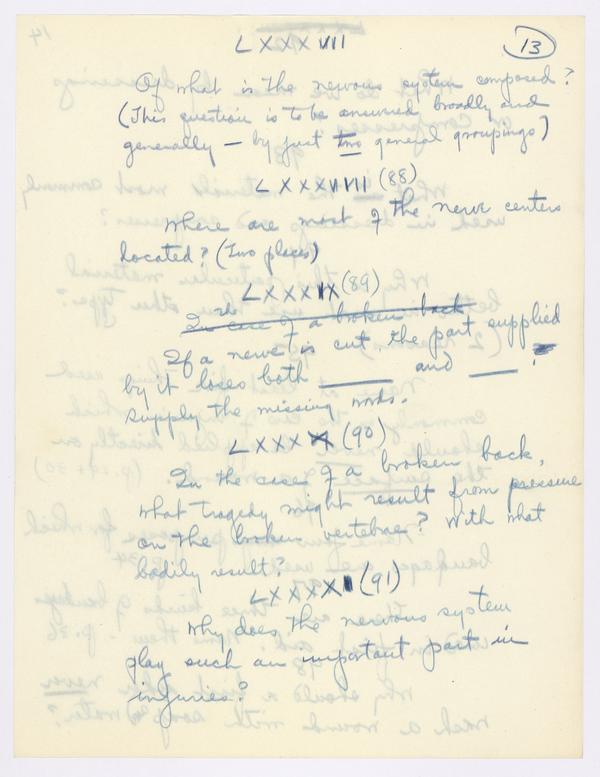 LXXXVII
13
Of what is the nervous system composed?
(This question is to be answered broadly and
generally — by just two general groupings)
LXXXVIII (88)
Where are most of the nerve centers
located? (Two places)
LXXXIX (89)
In case of a broken back
If a nerve is cut, the part supplied
by it loses both ______ and _____ ?
supply the missing words.
LXXXX (90)
In the case of a broken back,
what tragedy might result from pressure
on the broken vertebrae? With what
bodily result?
LXXXXI (91)
Why does the nervous system
play such an important part in
injuries?